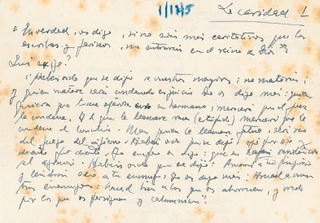 1/13/5
La caridad 1
"En verdad, os digo, si no sois mas caritativos que los
escribas y fariseos, no entrareis en el reino de Dios"
Dijo
"Habeis oido que se dijo a vuestros mayores; no mataras;
y quien matare sera condenado en juicio. Yo os digo mas: quien
quiera que tome ojeriza con su hermano, merecera que el juez
le condene. Y el que le llamare raca (estupido) merecera que le
condene el concilio. Mas quien le llamare fatuo, sera reo
del fuego del infierno. Habeis oido que se dijo: ojo por ojo y
diente por diente. Yo empero os digo: que no hagais resistencia
al agravio. Habeis oido que se dijo: Amaras a tu projimo
y tendras odio a tu enemigo. Yo os digo mas: Amad a vues-
tros enemigos: haced bien a los que os aborrecen, y orad
por los que os persiguen y calumnian"